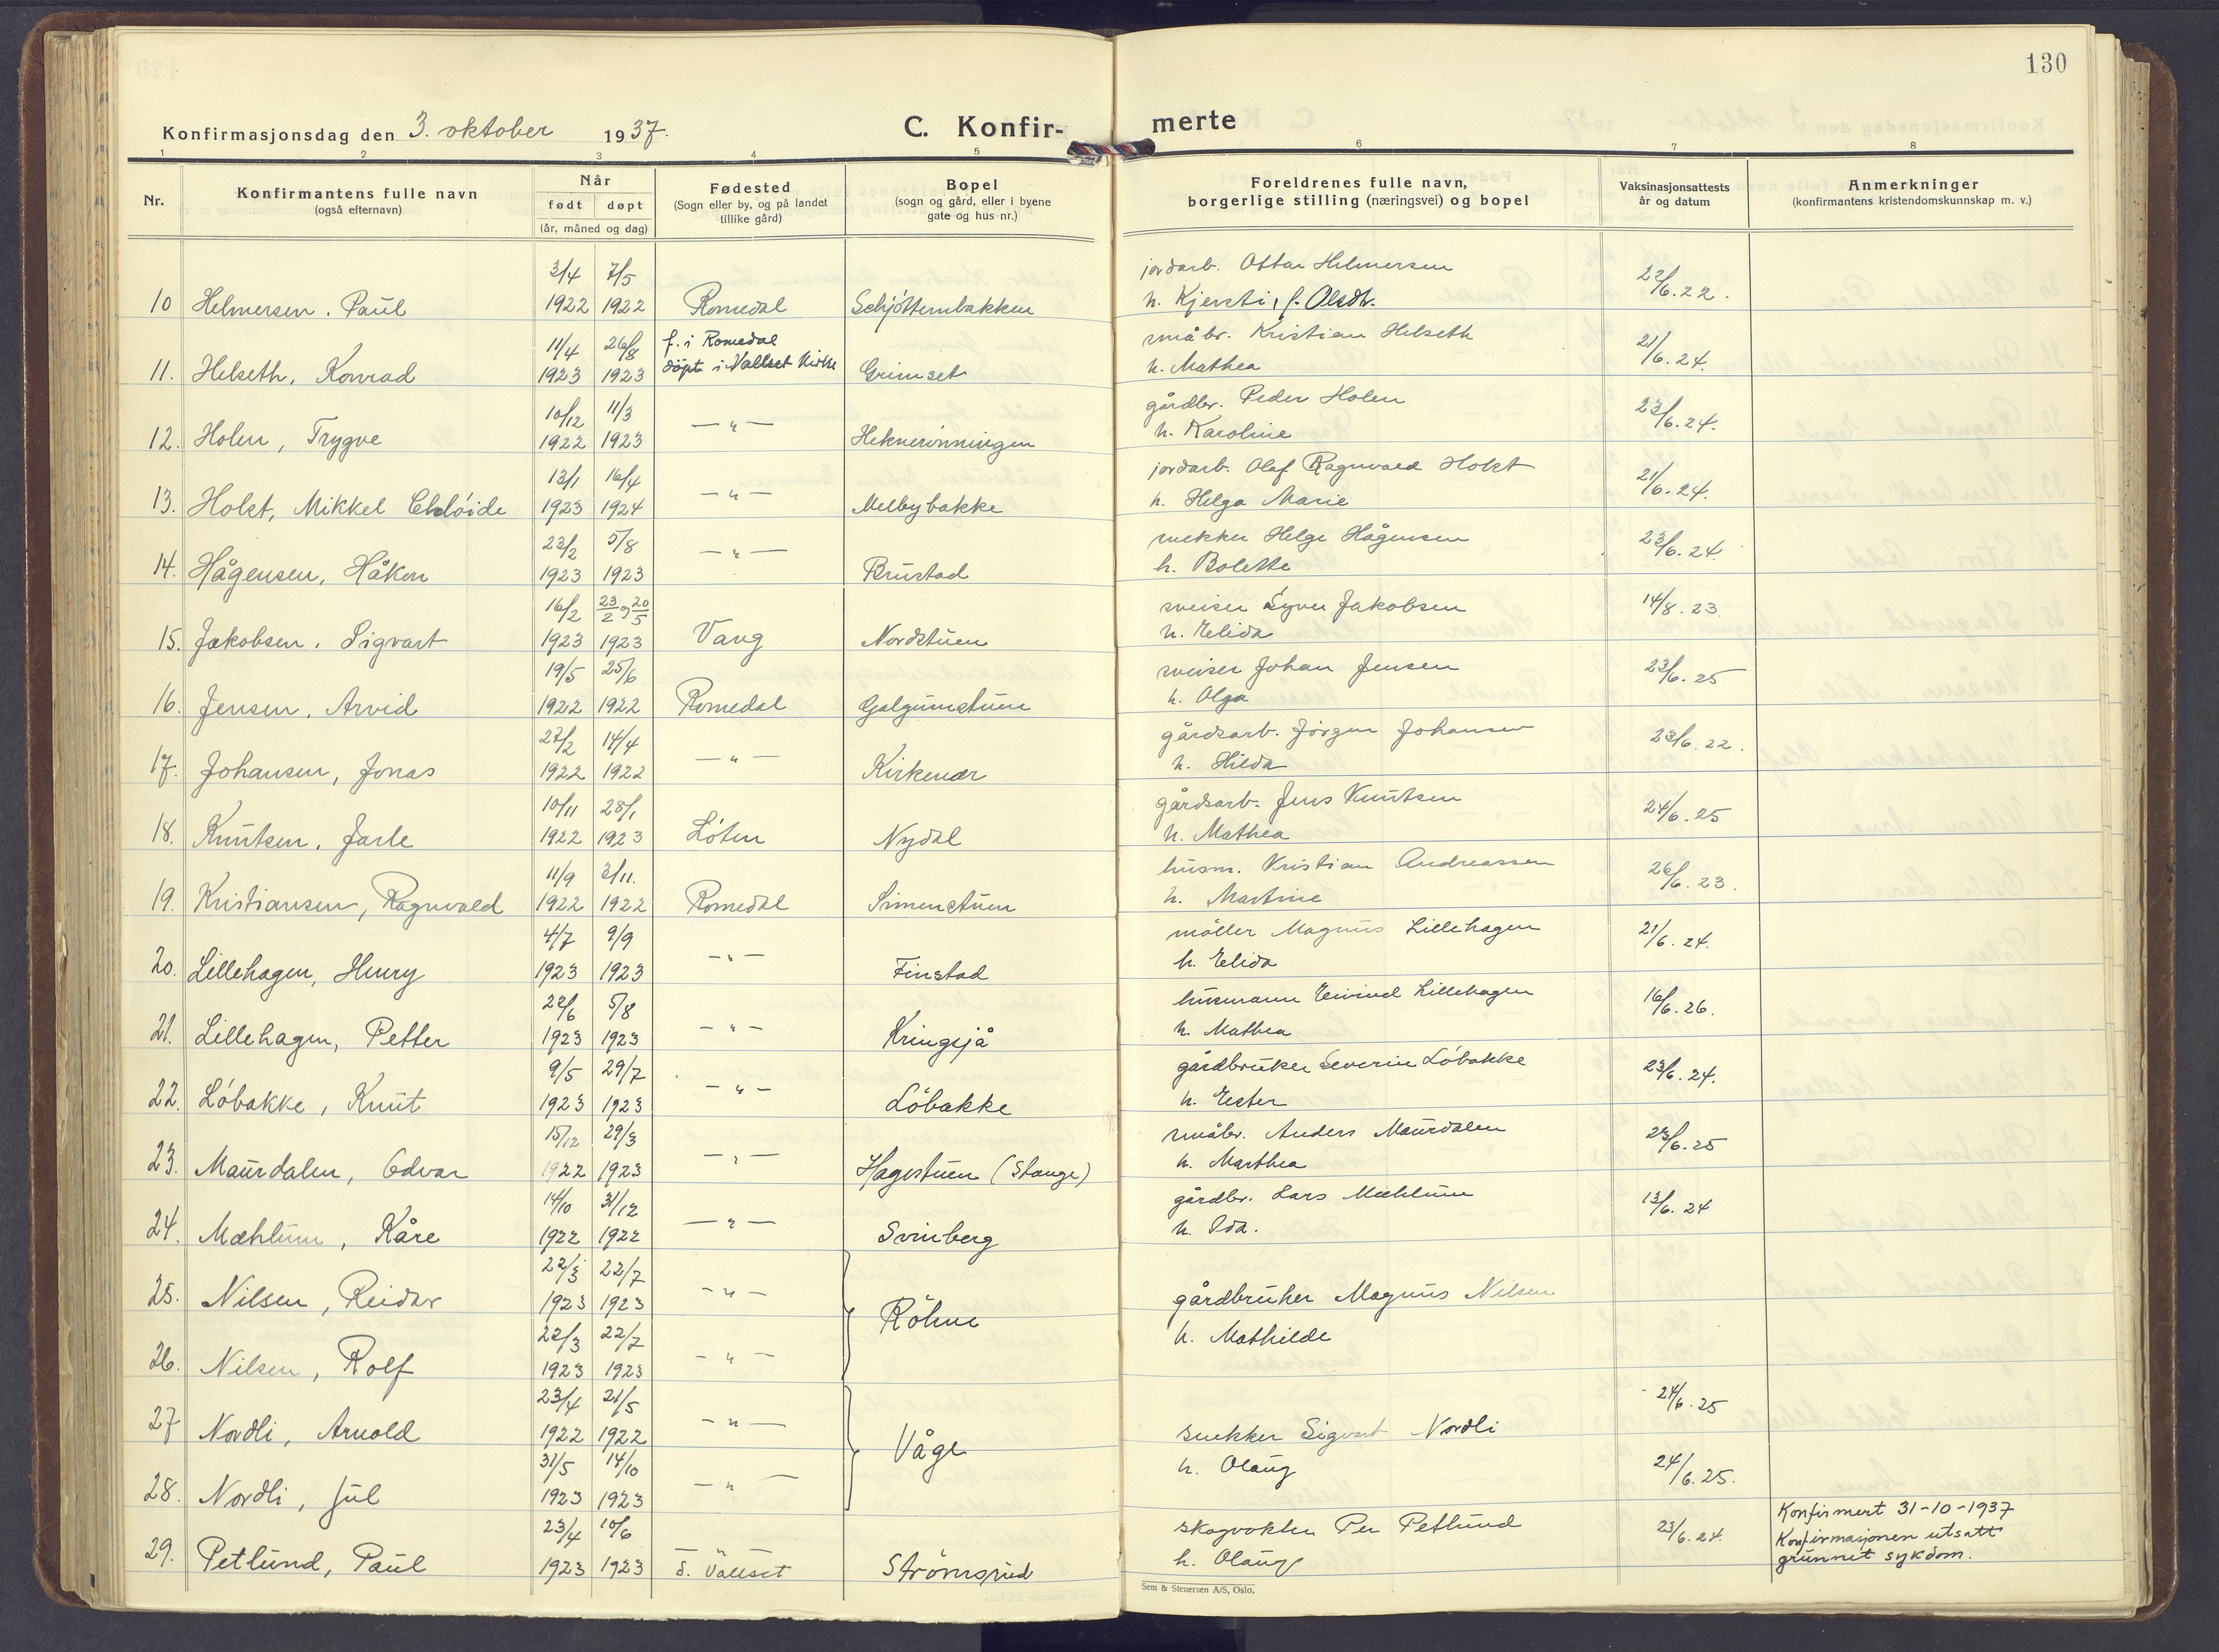 130
Konfirmasjonsdag den 3. oktober 1937.
C. Konfir-
merte
1 2 3 4 5 6 7 8
Nr.
Konfirmantens fulle navn
(også efternavn)
Når
født døpt
(år, måned og dag)
Fødested
(Sogn eller by, og på landet
tillike gård)
Bopel
(sogn og gård, eller i byene
gate og hus nr.)
Foreldrenes fulle navn,
borgerlige stilling (næringsvei) og bopel
Vaksinasjonsattests
år og datum
Anmerkninger
(konfirmantens kristendomskunnskap m. v.)
3/4 7/5 jordarb. Ottar Helmersen
10 Helmersen, Paul 1922 1922 Romedal Schjøttembakken h. Kjersti, f. Olsdt. 22/6.22.
11/4 26/8 f. i Romedal småbr. Kristian Helseth
11. Helseth, Konrad 1923 1923 döpt i Vallset Kirke Grimset h. Mathea 21/6.24.
10/12 11/3 gårdbr. Peder Holen
12. Holen, Trygve 1922 1923 —"— Heknerönningen h. Karoline 23/6.24.
13/1 16/4 jordarb. Olaf Ragnvald Holst
13. Holst, Mikkel 1923 1924 —"— Melbybakke h. Helga Marie 21/6.24.
23/2 5/8 snekker Helge Hågensen
14. Hågensen, Håkon 1923 1923 —"— Brustad h. Bolette 23/6.24.
16/2 23/2 og 20/5 sveiser Syver Jakobsen
15. Jakobsen, Sigvart 1923 1923 Vang Nordstuen h. Elida 14/8.23.
19/5 25/6 sveiser Johan Jensen
16. Jensen, Arvid 1922 1922 Romedal Galgumstuen h. Olga 23/6.25
27/2 14/4 gårdsarb. Jörgen Johansen
17. Johansen, Jonas 1922 1922 —"— Kirkenær h. Hilda 23/6.22.
10/11 28/1 gårdsarb. Jens Knutsen
18. Knutsen, Jarle 1922 1923 Löten Nydal h. Mathea 24/6.25
11/9 3/11. husm. Kristian Andreassen
19. Kristiansen, Ragnvald 1922 1922 Romedal Simenstuen h. Martine 26/6.23.
4/7 9/9 möller Magnus Lillehagen
20. Lillehagen, Henry 1923 1923 —"— Finstad h. Elida 21/6.24.
22/6 5/8 husmann Eivind Lillehagen
21. Lillehagen, Petter 1923 1923 —"— Kringsjå h. Mathea 16/6.26.
9/5 29/7 gårdbruker Severin Löbakke
22. Löbakke, Knut 1923 1923 —"— Löbakke h. Ester 23/6.24.
15/12 29/3 småbr. Anders Maurdalen
23. Maurdalen, Odvar 1922 1923 —"— Hagestuen (Stange) h. Marthea 23/6.25
14/10 31/12 gårdbr. Lars Mæhlum
24. Mæhlum, Kåre 1922 1922 —"— Svinberg h. Ida. 13/6.24
22/3 22/7
25. Nilsen, Reidar 1923 1923 —"— Röhne gårdbruker Magnus Nilsen
22/3 22/7 h. Mathilde
26. Nilsen, Rolf 1923 1923 —"—
23/4 21/5 24/6.25
27 Nordli, Arnold 1922 1922 —"— Våge snekker Sigvart Nordli
31/5 14/10 h. Olaug 24/6.25.
28. Nordli, Jul 1923 1923 —"—
23/4 10/6 —"— skogvokter Per Petlund 23/6.24. Konfirmert 31-10-1937
29. Petlund, Paul 1923 1923 d. Vallset Strömsrud h. Olaug Konfirmasjonen utsatt
grunnet sykdom.
Sem & Stenersen A/S, Oslo.